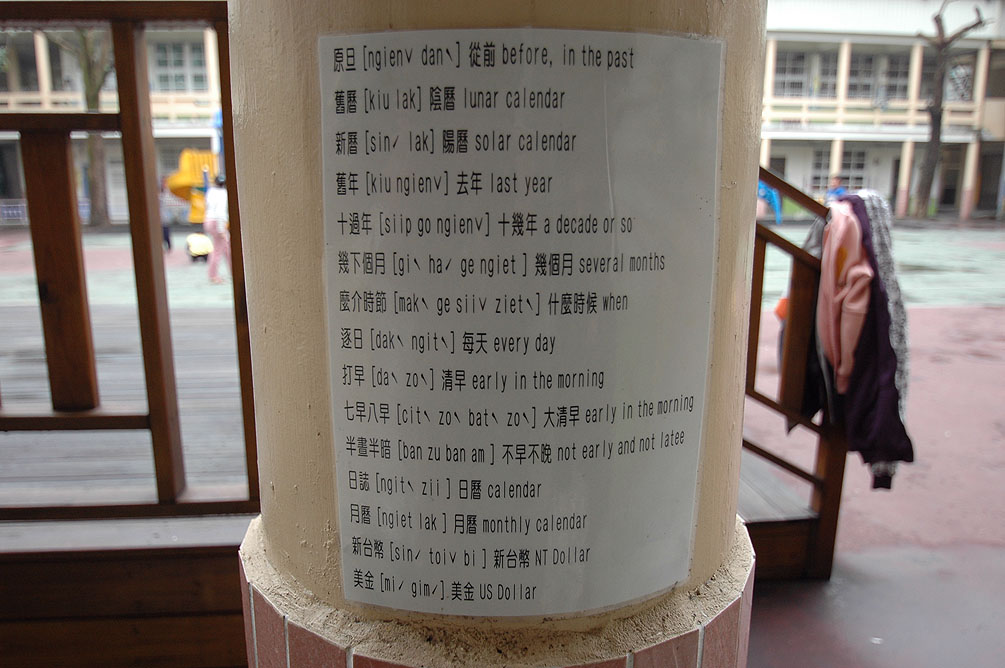 原旦 [ngienˇ danˋ] 從前 before, in the past
舊曆 [kiu lak] 陰曆 lunar calendar
新曆 [sinˊ lak] 陽曆 solar calendar
舊年 [kiu ngienˇ] 去年 last year
十過年 [siip go ngienˇ] 十幾年 a decade or so
幾下個月 [giˋ haˊ ge ngiet ] 幾個月 several months
麼介時節 [makˋ ge siiˇ zietˋ] 什麼時候 when
逐日 [dakˋ ngitˋ] 每天 every day
打早 [daˋ zoˋ] 清早 early in the morning
七早八早 [citˋ zoˋ batˋ zoˋ] 大清早 early in the morning
半晝半暗 [ban zu ban am ] 不早不晚 not early and not latee
日誌 [ngitˋ zii ] 日曆 calendar
月曆 [ngiet lak ] 月曆 monthly calendar
新台幣 [sinˊ toiˇ bi ] 新台幣 NT Dollar
美金 [miˊ gimˊ] 美金 US Dollar